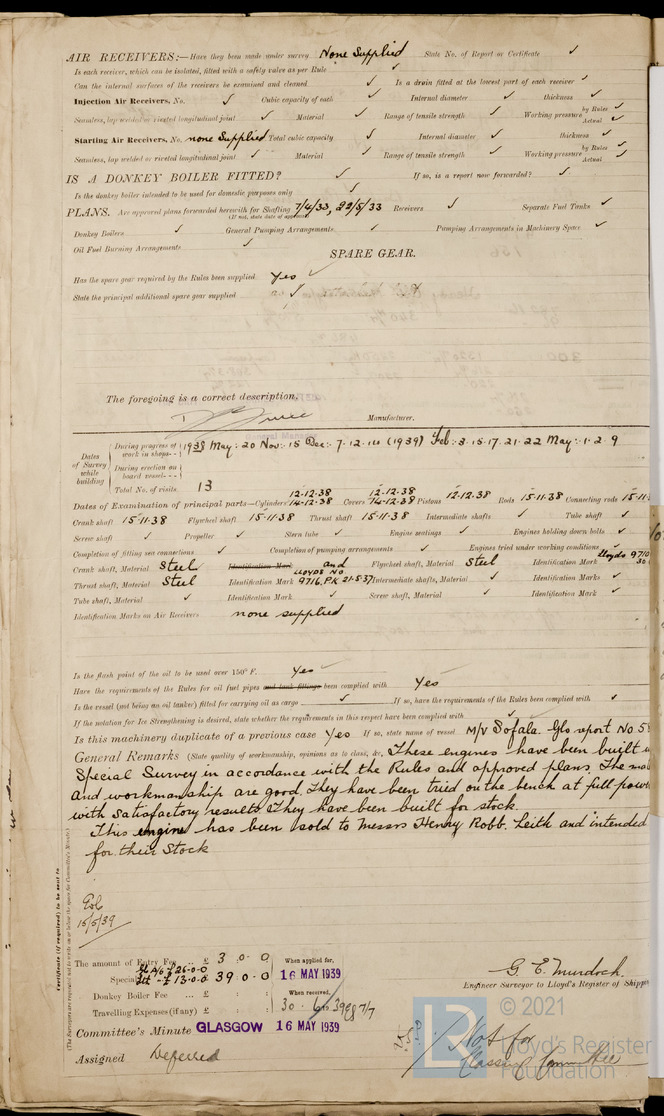 AIR RECEIVERS:—Have they been made under survey None Supplied State No. of Report or Certificate ✓
Is each receiver, which can be isolated, fitted with a safety valve as per Rule ✓
Can the internal surfaces of the receivers be examined and cleaned ✓ Is a drain fitted at the lowest part of each receiver ✓
Injection Air Receivers, No. ✓ Cubic capacity of each ✓ Internal diameter ✓ thickness ✓
Seamless, lap welded or riveted longitudinal joint ✓ Material ✓ Range of tensile strength ✓ Working pressure by Rules ✓ Actual ✓
Starting Air Receivers, No. none Supplied Total cubic capacity ✓ Internal diameter ✓ thickness ✓
Seamless, lap welded or riveted longitudinal joint ✓ Material ✓ Range of tensile strength ✓ Working pressure by Rules ✓ Actual ✓
IS A DONKEY BOILER FITTED? ✓ If so, is a report now forwarded? ✓
Is the donkey boiler intended to be used for domestic purposes only ✓
PLANS. Are approved plans forwarded herewith for Shafting 7/4/33, 22/5/33 Receivers ✓ Separate Fuel Tanks ✓
(If not, state date of approval)
Donkey Boilers ✓ General Pumping Arrangements ✓ Pumping Arrangements in Machinery Space ✓
Oil Fuel Burning Arrangements ✓
SPARE GEAR.
Has the spare gear required by the Rules been supplied Yes ✓
State the principal additional spare gear supplied ✓
The foregoing is a correct description,
Manufacturer.
General Manager
Dates of Survey while building
During progress of work in shops - - 1938 May: 20 Nov: 15 Dec: 7. 12. 14 (1939) Feb: 3. 15. 17. 21. 22 May: 1. 2. 9
During erection on board vessel - - -
Total No. of visits 13
Dates of Examination of principal parts—Cylinders 12-12-38 14-12-38 Covers 12-12-38 14-12-38 Pistons 12-12-38 Rods 15-11-38 Connecting rods 15-11-
Crank shaft 15-11-38 Flywheel shaft 15-11-38 Thrust shaft 15-11-38 Intermediate shafts ✓ Tube shaft ✓
Screw shaft ✓ Propeller ✓ Stern tube ✓ Engine seatings ✓ Engines holding down bolts ✓
Completion of fitting sea connections ✓ Completion of pumping arrangements ✓ Engines tried under working conditions ✓
Crank shaft, Material Steel Identification Mark and Flywheel shaft, Material Steel Identification Mark Lloyds 9710 30
Thrust shaft, Material Steel Identification Mark LLOYDS NO 9716. P.K 21-5-37 Intermediate shafts, Material ✓ Identification Marks ✓
Tube shaft, Material ✓ Identification Mark ✓ Screw shaft, Material ✓ Identification Mark ✓
Identification Marks on Air Receivers none supplied
Is the flash point of the oil to be used over 150° F. Yes ✓
Have the requirements of the Rules for oil fuel pipes and tank fittings been complied with Yes
Is the vessel (not being an oil tanker) fitted for carrying oil as cargo ✓ If so, have the requirements of the Rules been complied with ✓
If the notation for Ice Strengthening is desired, state whether the requirements in this respect have been complied with ✓
Is this machinery duplicate of a previous case Yes If so, state name of vessel M/V Sofala. Glo report No 5
General Remarks (State quality of workmanship, opinions as to class, &c. These engines have been built
Special Survey in accordance with the Rules and approved plans. The
and workmanship are good. They have been tried on the bench at full power
with satisfactory results. They have been built for stock.
This engine has been sold to Messrs Henry Robb. Leith and intended
for their Stock
15/5/39
Certificate (if required) to be sent to
(The Surveyors are requested not to write on or below the space for Committee's Minute.)
The amount of Entry Fee .. £ 3 : 0 : 0 When applied for,
£26-0-0
Special £13-0-0 39 . 0 . 0 16 MAY 1939
Donkey Boiler Fee ... £ : : When received,
Travelling Expenses (if any) £ : : 30. 6. 1939 7/7
Committee's Minute GLASGOW 16 MAY 1939
Assigned Deferred
G E. Murdoch.
Engineer Surveyor to Lloyd's Register of Shipp
Not for Classing Committee
© 2021
Lloyd's Register
Foundation